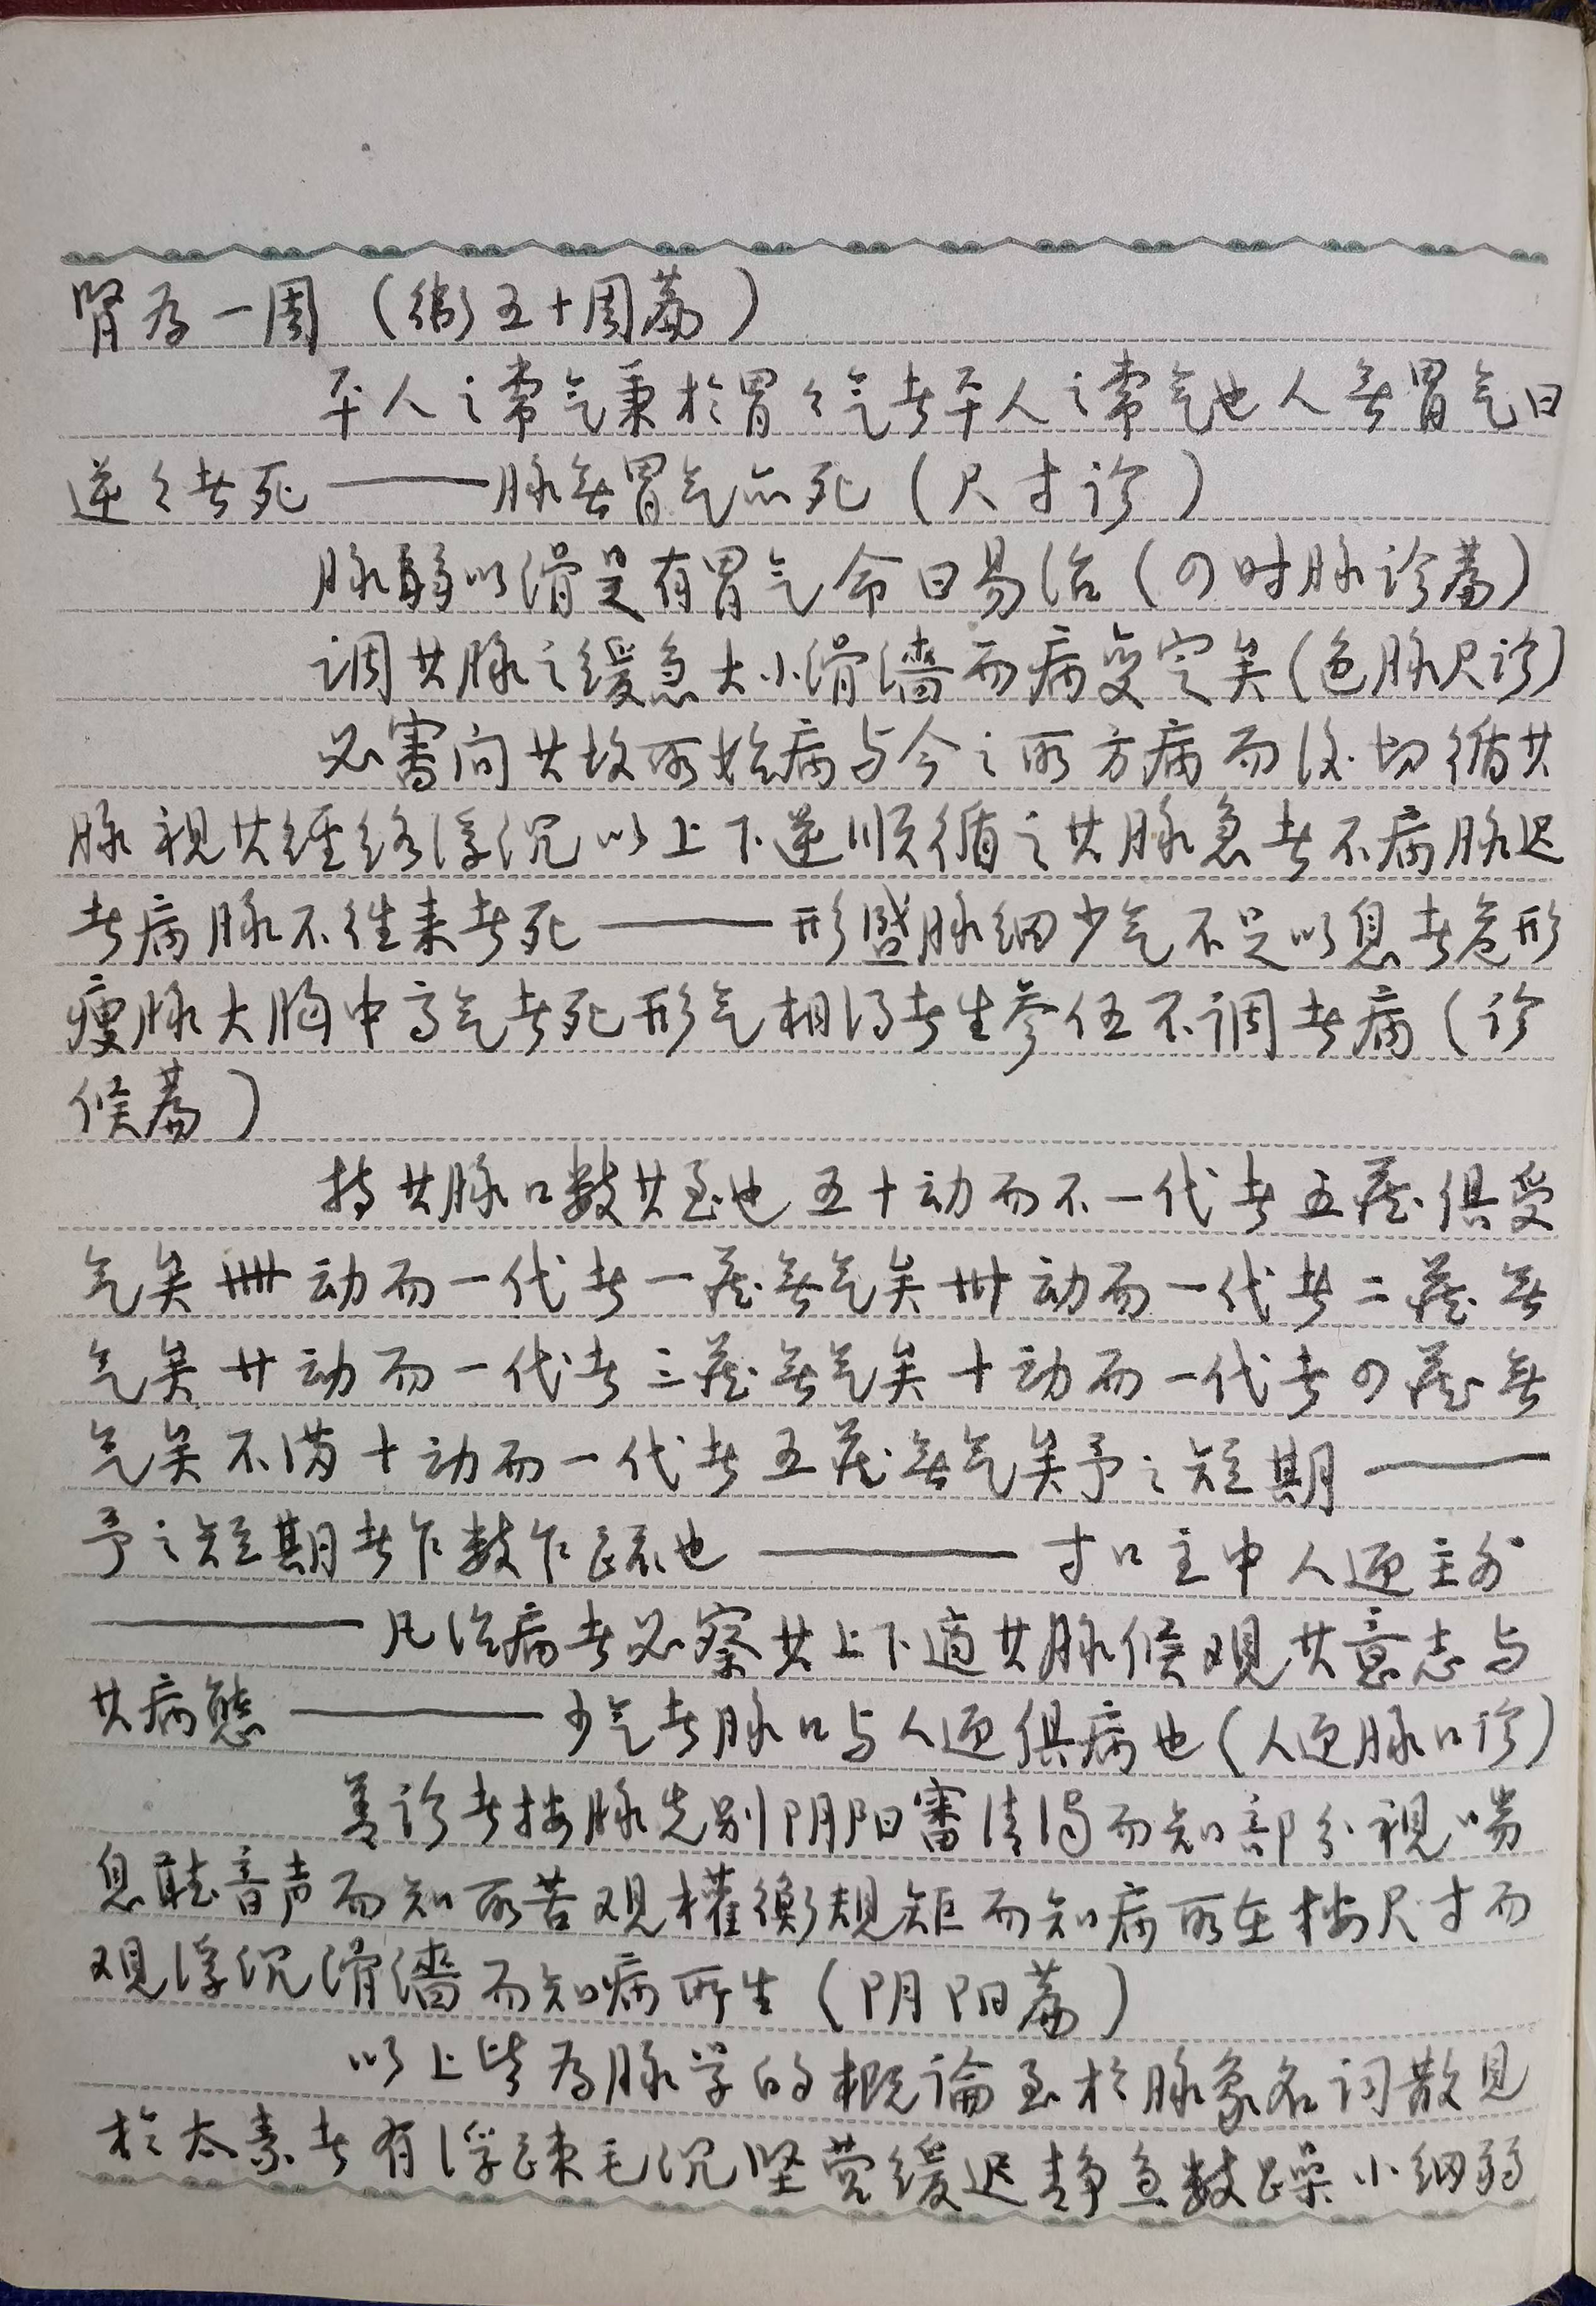 肾为一周（衛五十周篇）
平人之常气秉於胃々气者平人之常气也人無胃气曰
逆々者死——脉無胃气亦死（尺寸诊）
脉弱以滑是有胃气命曰易治（四时脉诊篇）
调其脉之缓急大小滑濇而病变定矣（色脉尺诊）
必審问其故所始病与今之所方病而後切循其
脉視其经络浮沉以上下逆順循之其脉急者不病脉迟
者病脉不往来者死——形盛脉细少气不足以息者危形
瘦脉大胸中多气者死形气相得者生参伍不调者病（诊
候篇）
持其脉口数其至也五十动而不一代者五藏俱受
气矣卌动而一代者一藏無气矣卅动而一代者二藏無
气矣廿动而一代者三藏無气矣十动而一代者四藏無
气矣不满十动而一代者五藏無气矣予之短期——
予之短期者乍数乍疎也——寸口主中人迎主外
——凡治病者必察其上下適其脉候观其意志与
其病態——少气者脉口与人迎俱病也（人迎脉口诊）
善诊者按脉先别阴阳審清浊而知部分視喘
息聴音声而知所苦观權衡規矩而知病所在按尺寸而
观浮沉滑濇而知病所生（阴阳篇）
以上皆为脉学的概論至於脉象名词散見
於太素者有浮疎毛沉坚营缓迟静急数躁小细弱